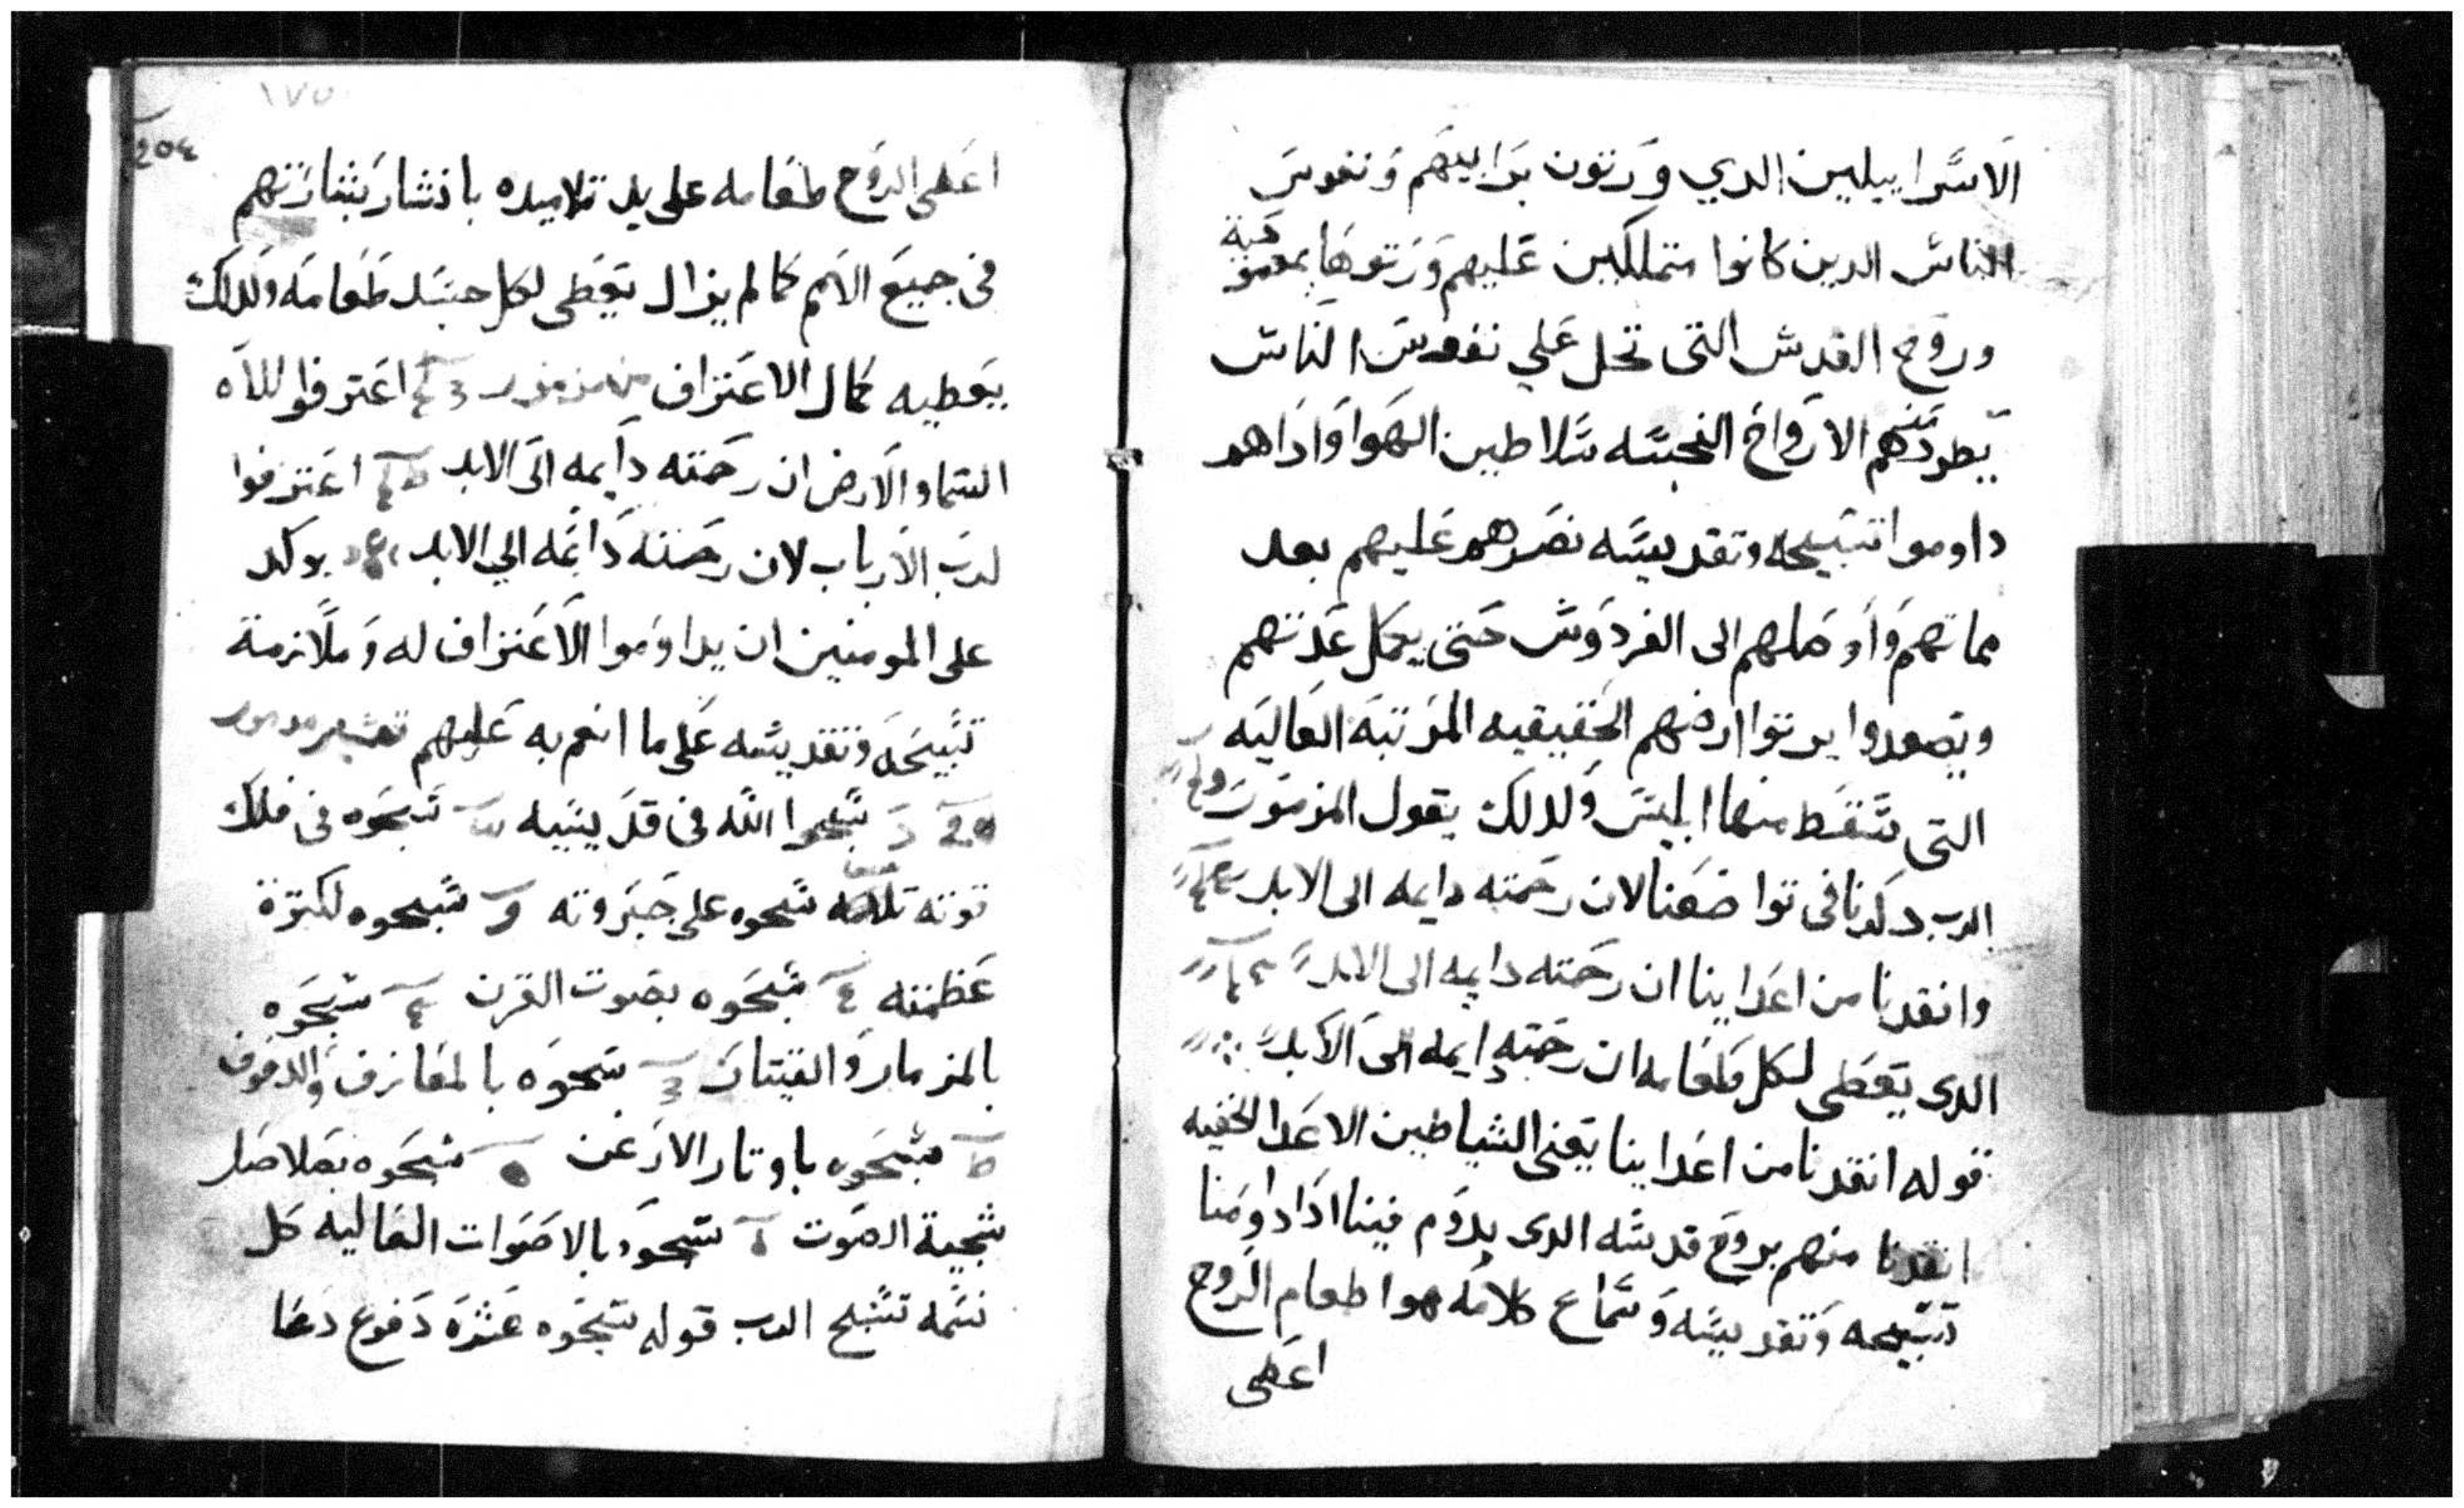 الاسراييليين الدي ورتون برابيهم ونفوس
الناس الدين كانوا متملكين عليهم ورتوها بمعمودية
وروح القدس التى تحل علي نفوس الناس
يطرد منهم الارواح النجسه سلاطين الهوا وادا هم
داوموا تسبيحه وتقديسه نصرهم عليهم بعد
مماتهم واوصلهم الى الفردوس حتى يكمل عدتهم
ويصعدوا يرتوا ارضهم الحقيقيه المرتبه العاليه
التى سقط منها ابليس ولدلك يقول المزمور
الرب دكرنا فى تواضعنا لان رحمته دايمه الى الابد
وانقدنا من اعداينا ان رحمته دايمه الى الابد
الدى يعطى لكل طعامه ان رحمته دايمه الى الابد
قوله انقدنا من اعداينا يعنى الشياطين الاعدا الخفيه
انقدنا منهم بروح قدسه الدى يدوم فينا ادا داومنا
تسبيحه وتقديسه وسماع كلامه هوا طعام الروح
اعطى
١٧٥
اعطى الروح طعامه على يد تلاميده بانتشار بشارتهم
فى جميع الامم كما لم يزال يعطى لكل جسد طعامه ولدلك
يعطيه كمال الاعتراف اعترفوا للاه
السما والارض ان رحمته دايمه الى الابد اعترفوا
لرب الارباب لان رحمته دايمه الي الابد يوكد
على المومنين ان يداوموا الاعتراف له وملازمة
تسبيحه وتقديسه على ما انعم به عليهم تفسير مزمور
سبحوا الله فى قديسيه سبحوه فى فلك
قوته سبحوه على جبروته سبحوه لكترة
عظمته سبحوه بصوت القرن سبحوه
بالمزمار والقيتار سبحوه بالمعازف والدفوف
سبحوه باوتار الارغن سبحوه بصلاصل
شجية الصوت سبحوه بالاصوات العاليه كل
نسمه تسبح الرب قوله سبحوه عشره دفوع دعا